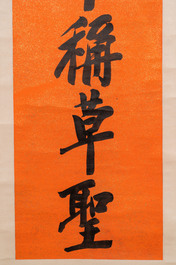 稱草聖